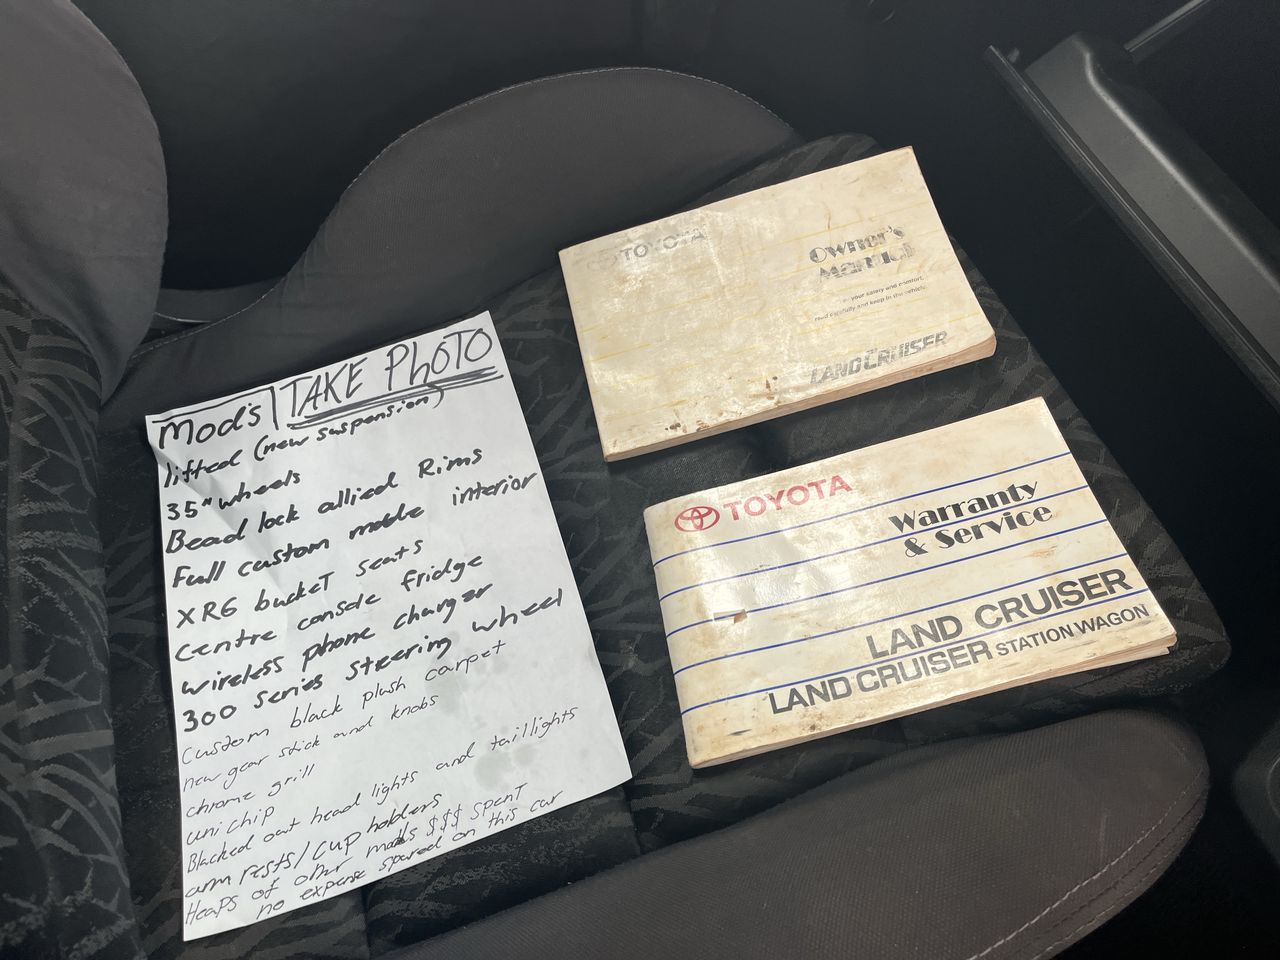 Mod's | TAKE PHOTO
lifted (new suspension)
35" wheels
Bead lock allied Rims
Full custom mobile interior
XR6 buckeT seats
centre console fridge
wireless phone charger
300 series steering wheel
Custom black plush carpet
new gear stick and knobs
chrome grill
unichip
Blacked out head lights and taillights
arm rests/cup holders
Heaps of other mods $$$ spenT
no expense spared on this car
TOYOTA
Owner's
Manual
your safety and comfort,
read carefully and keep in the vehicle.
LAND CRUISER
TOYOTA
Warranty
& Service
LAND CRUISER
LAND CRUISER STATION WAGON